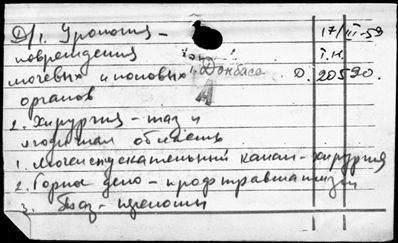 Д/1. Урология – 17/III-59
повреждения Т.К.
мочевых и половых Донбасс Д. 20520.
органов А
2. Хирургия – таз и
ягодичная область
1. Мочеиспускательный канал – хирургия
2. Горное дело – профтравматизм
3. Таз – переломы